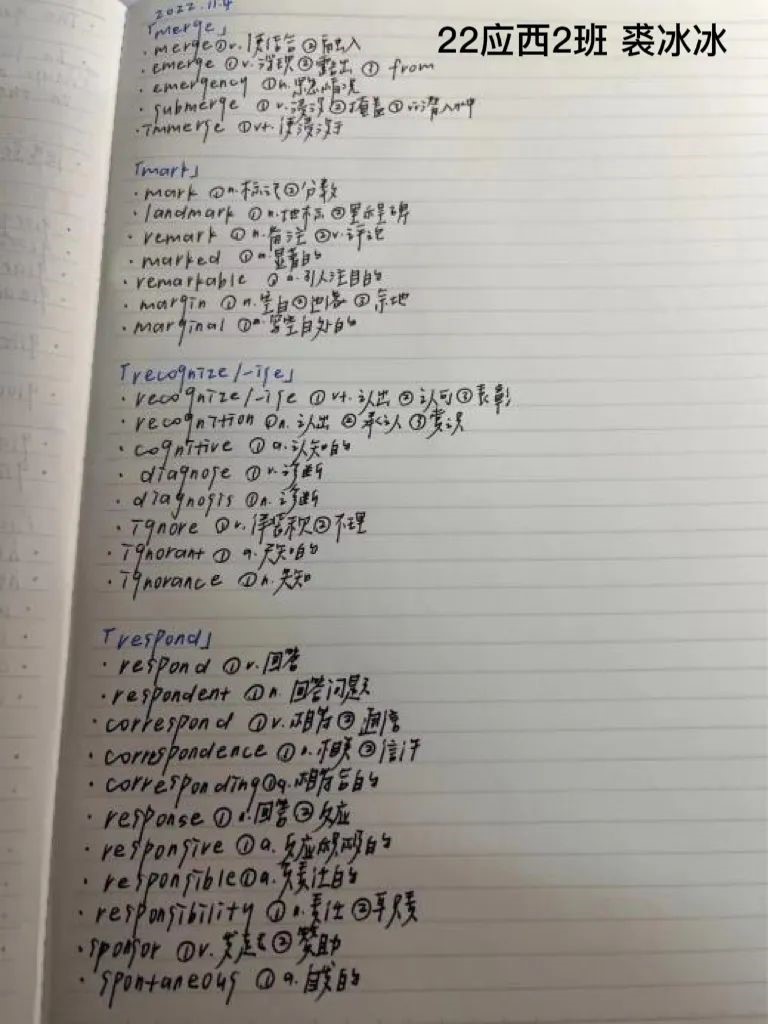 2022.11.4
22应西2班 裘冰冰
「merge」
· merge ①v. 使结合 ②融入
· emerge ①v. 浮现 ②露出 ① from
· emergency ①n. 紧急情况
· submerge ①v. 浸没 ②覆盖 ③ 潜入
· immerge ①vt. 使浸没于
「mark」
· mark ①n. 标记 ②分数
· landmark ①n. 地标 ②里程碑
· remark ①n. 备注 ②v. 评论
· marked ①a. 显著的
· remarkable ① a. 引人注目的
· margin ①n. 空白 ②边缘 ③
· marginal ①a. 空白处的
「recognize/-ise」
· recognize/-ise ①vt. 认出 ②认可 ③表彰
· recognition ①n. 认出 ②承认 ③赏识
· cognitive ①a. 认知的
· diagnose ①v. 诊断
· diagnosis ①n. 诊断
· ignore ①v. 佯装 ②不理
· ignorant ① a. 无知的
· ignorance ①n. 无知
「respond」
· respond ①v. 回答
· respondent ①n. 回答问题
· correspond ①v. 相符 ②通信
· correspondence ①n. 相关 ②信件
· corresponding ①a. 相符合的
· response ①n. 回答 ②反应
· responsive ①a. 反应 的
· responsible ①a. 负责任的
· responsibility ①n. 责任 ②职责
· sponsor ①v. 发起 ②赞助
· spontaneous ①a. 自发的